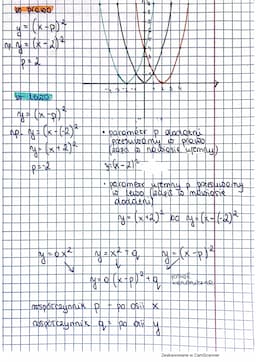 w prawo
y = (x-p)²
np. y = (x-2)²
p = 2
w lewo
y = (x-p)²
np. y = (x-(-2))²
y = (x+2)²
p = -2
• parametr p dodatni
przesuwamy w prawo
(zapis w nawiasie ujemny)
y = (x-2)²
• parametr ujemny p przesuwamy
w lewo (zapis w nawiasie
dodatni)
y = (x+2)² bo y = (x-(-2))²
y = ax² y = x² + q y = (x-p)²
y = a(x-p)² + q
współczynnik p - po osi x
współczynnik q - po osi y
Zeskanowane w CamScanner